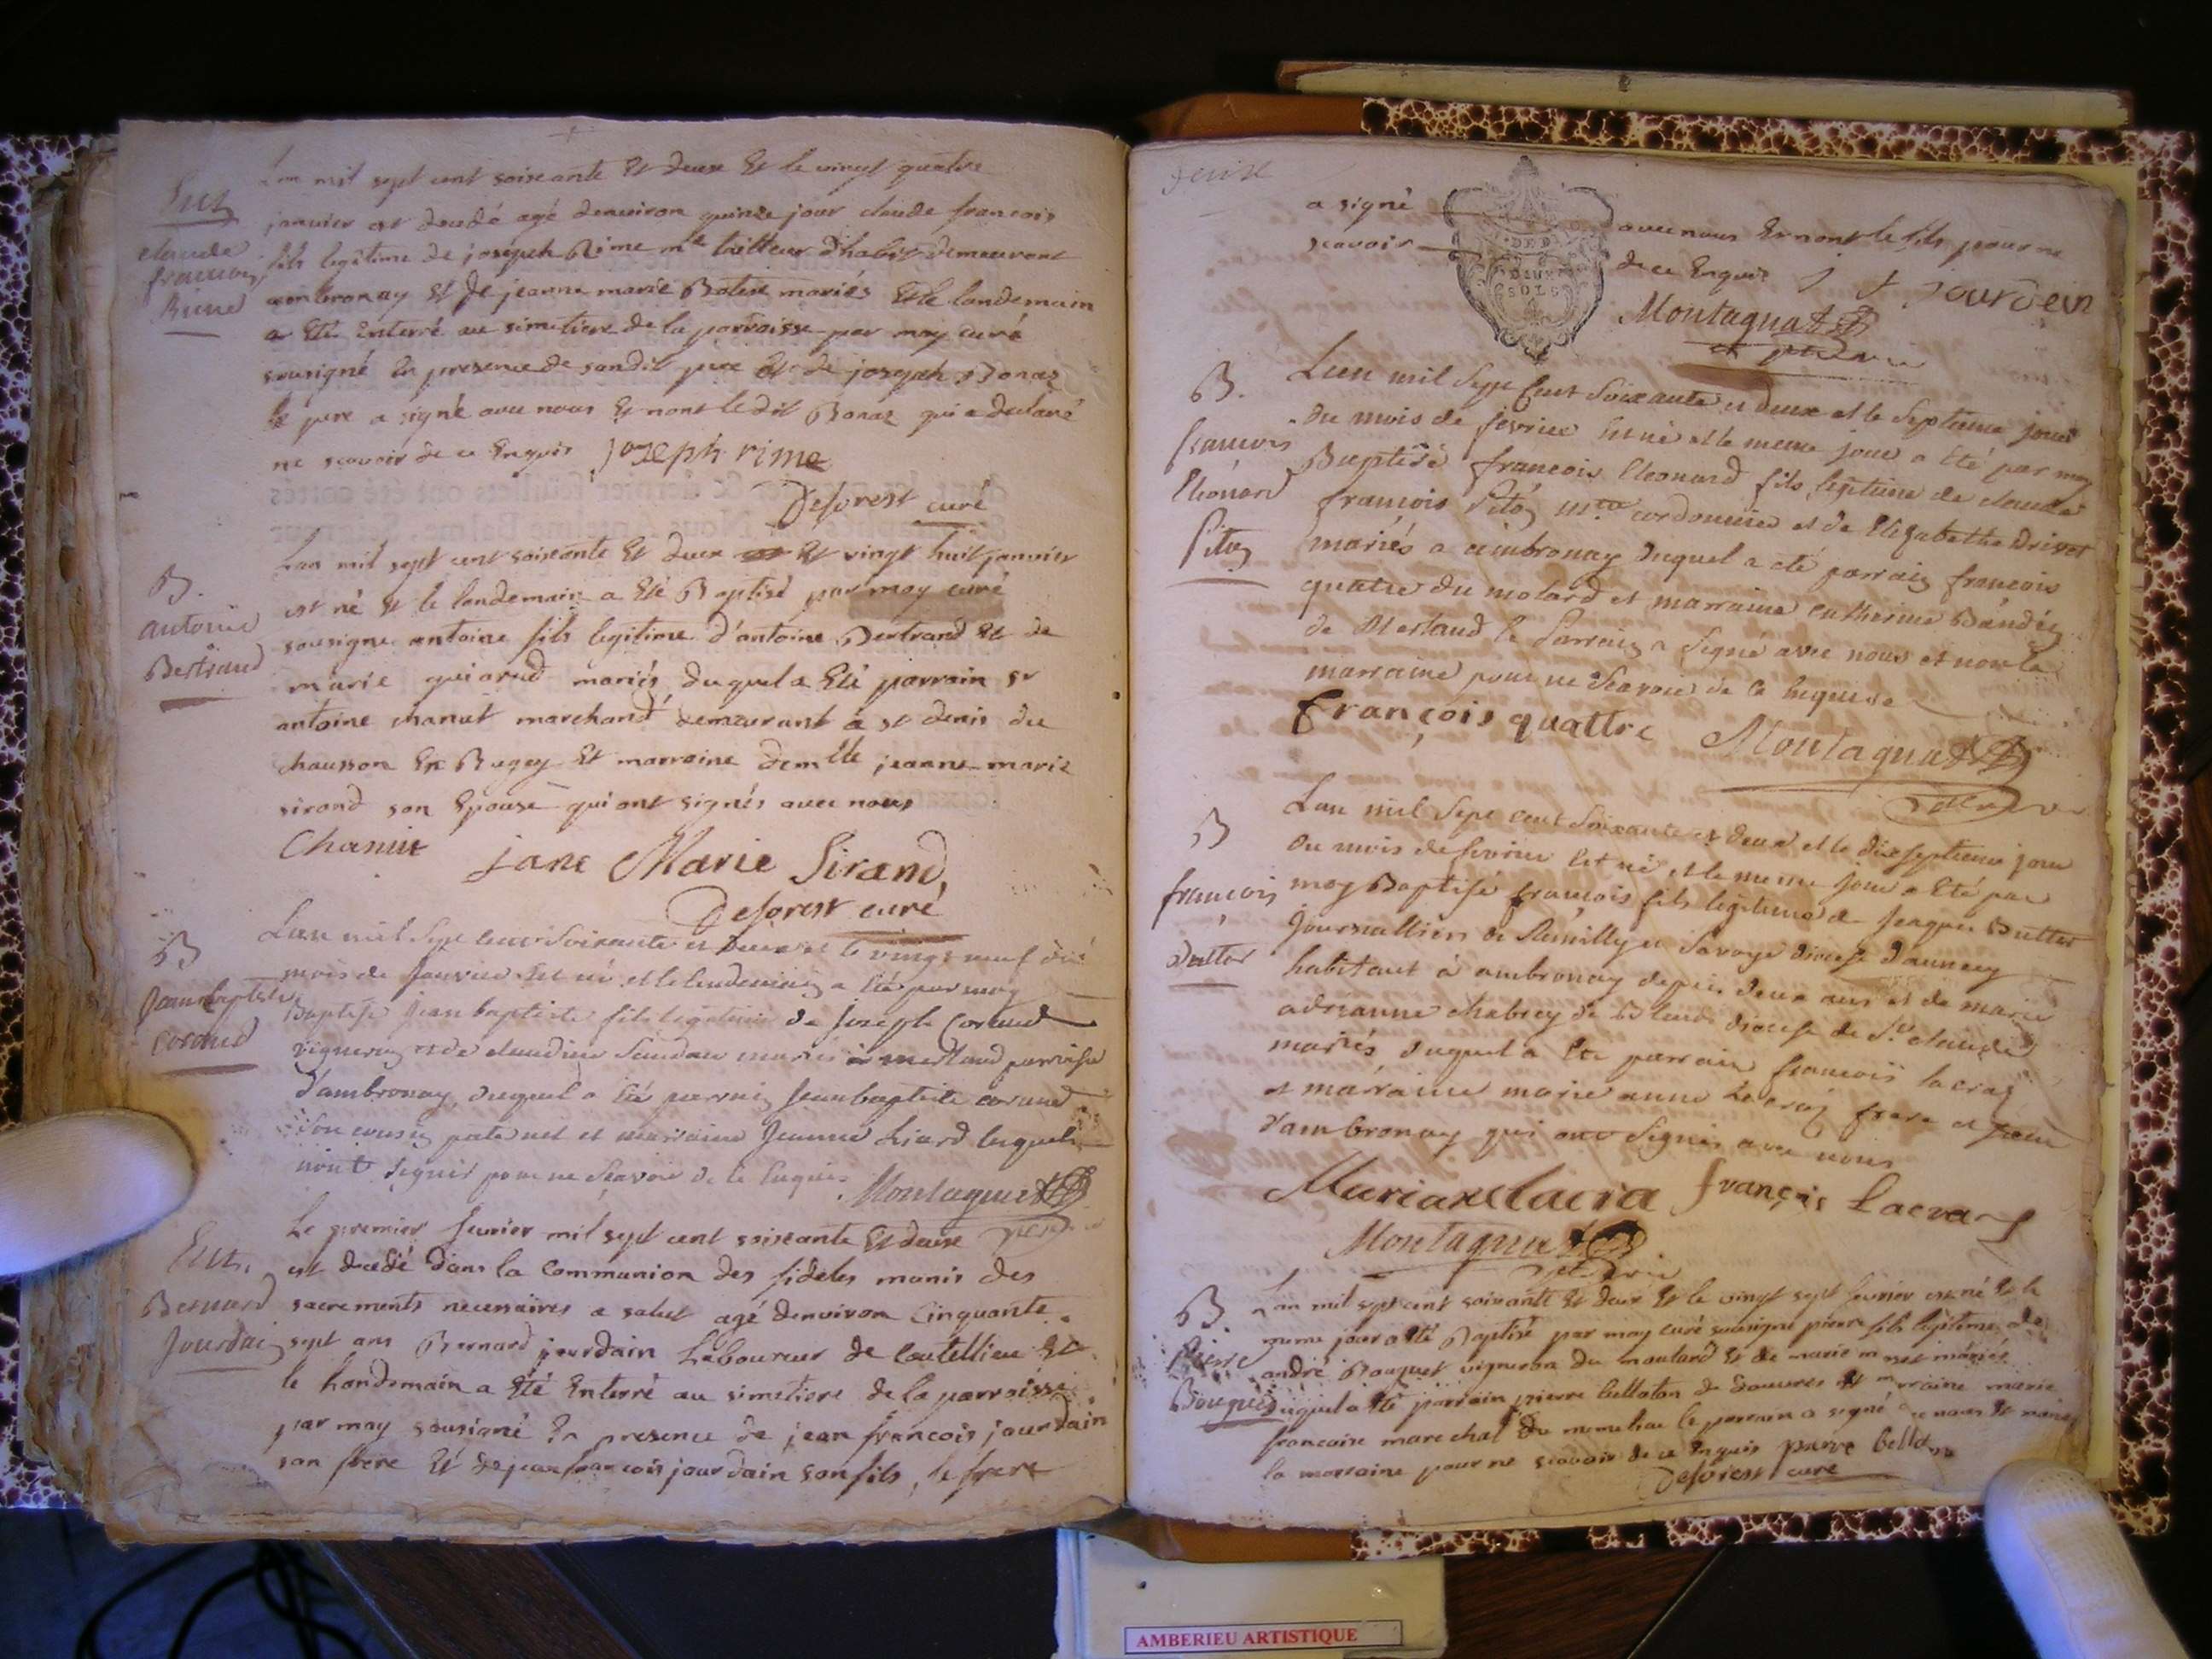 Ent
claude
francois
Rime
Lan mil sept cent soixante Et deux Et le vingt quattre
janvier est decedé agé denviron quinze jour claude francois
fils legitime de joseph Rime me tailleur dhabit demeurant
ambronay Et de jeanne marie mariés Et le landemain
a Eté Enterré au simetiere de la parroisse par moy curé
sousigné En presence de sondit pere Et de joseph Bonaz
le pere a signé avec nous Et non ledit Bonaz qui a declaré
ne scavoir de ce Enquis joseph rime
Deforest curé
B.
antoine
Bertrand
Lan mil sept cent soixante Et deux Et vingt huit janvier
est né Et le landemain a Eté Baptisé par moy curé
sousigne antoine fils legitime d'antoine Bertrand Et de
marie mariés duquel a Eté parrain sr
antoine chanut marchand demeurant a st denis du
chausson En Bugey Et marraine demlle jeanne marie
sirand son Epouse qui ont signés avec nous
Chanut jane Marie Sirand,
Deforest curé
B
Jean baptiste
corand
Lan mil sept cent soixante et deux et le vingt neuf du
mois de janvier Est né et le lendemain a Eté par moy
Baptisé jean baptiste fils legitime de joseph Corand
vigneron et de claudine mariés a merland parroisse
d'ambronay, duquel a Eté parrain jean baptiste corand
son cousin paternel et marraine jeanne Liard lesquels
n'ont signés pour ne scavoir de ce Enquis Montagnat
Ent.
Bernard
Jourdain
Le premier fevrier mil sept cent soixante Et deux
est decedé dans la Communion des fideles munis des
sacrements necessaires a salut agé denviron Cinquante
sept ans Bernard jourdain Laboureur de Coutellieu Et
le Landemain a Eté Enterré au simetiere de la parroisse
par moy sousigné En presence de jean francois jourdain
son frere Et de jean francois jourdain son fils, le frere
a signé avec nous Et non le fils pour ne
scavoir de ce Enquis j f jourdein
DEUX
SOLS
Montagnat
B.
francois
Eleonard
Pitoz
Lan mil sept Cent soixante et deux et le septieme jour
du mois de fevrier Est né et le meme jour a Eté par moy
Baptisé francois Eleonard fils legitime de claude
francois Pitoz me cordonnier et de Elizabethe Drivet
mariés a ambronay duquel a eté parrain francois
quatre du molard et marraine catherine
de Merland le Parrain a signé avec nous et non la
marraine pour ne scavoir de ce Enquise
François quattre Montagnat
B
francois
Dutter
Lan mil sept cent soixante et deux et le dixseptieme jour
du mois de fevrier Est né et le meme jour a Eté par
moy Baptisé francois fils legitime de jacques Dutter
journallier de Rumilly en Savoye diocese d'annecy
habitant à ambronay depuis deux ans et de marie
adrianne chabrey de diocese de St claude
mariés duquel a Eté parrain francois lacraz
et marraine marie anne Lacraz frere et sœur
d'ambronay qui ont signés avec nous
Mariane lacra françois Lacraz
Montagnat
B.
Pierre
Bouquet
Lan mil sept cent soixante Et deux Et le vingt sept fevrier est né Et le
meme jour a Eté Baptisé par moy curé sousigné pierre fils legitime de
andré Bouquet vigneron du moulard Et de marie mariés
duquel a Eté parrain pierre bellaton de Douvres Et marraine marie
francoise marechal du meme lieu le parrain a signé avec nous Et non
la marraine pour ne scavoir de ce Enquis pierre bellaton
Deforest curé
AMBERIEU ARTISTIQUE